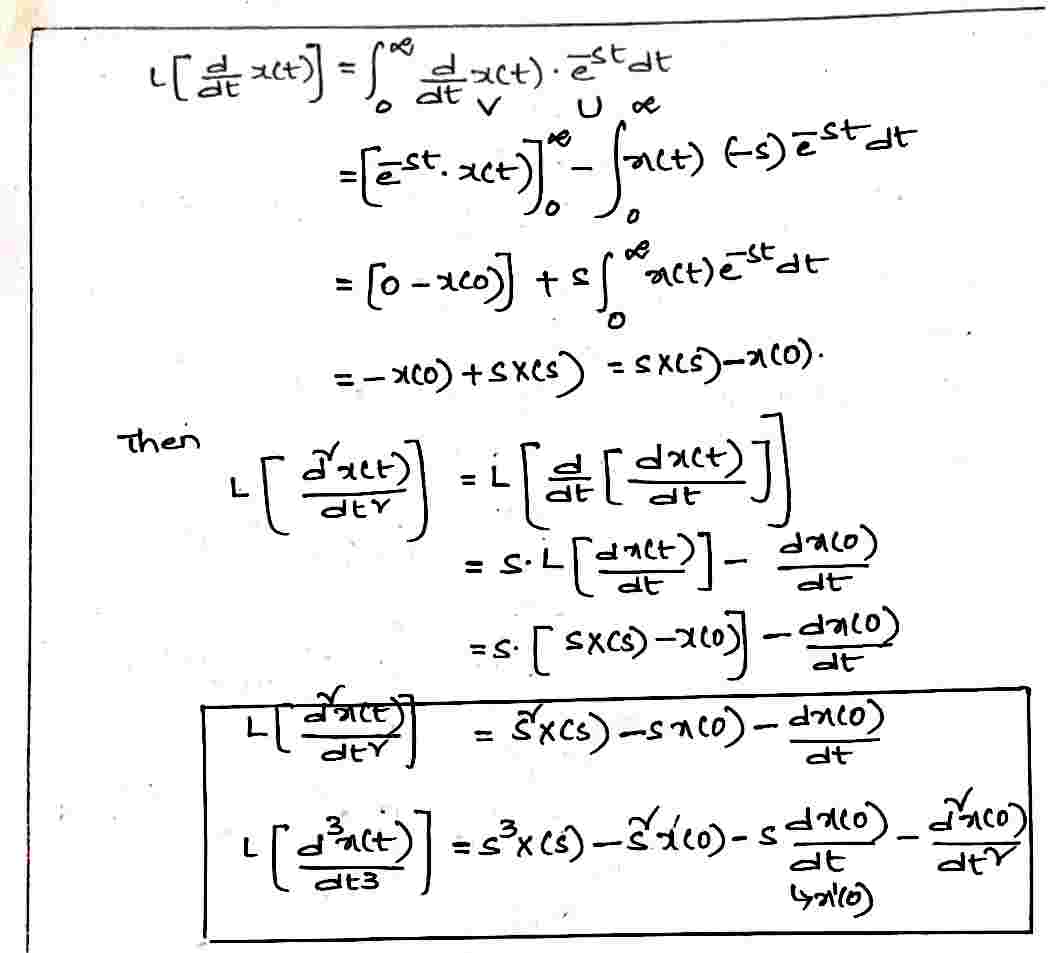 L[d/dt x(t)] = ∫₀^∞ d/dt x(t) · e^-st dt
V U
= [e^-st · x(t)]₀^∞ - ∫₀^∞ x(t) (-s) e^-st dt
= [0 - x(0)] + s ∫₀^∞ x(t) e^-st dt
= -x(0) + sX(s) = sX(s) - x(0).
Then
L[d²x(t)/dt²] = L[d/dt [dx(t)/dt]]
= s·L[dx(t)/dt] - dx(0)/dt
= s·[sX(s) - x(0)] - dx(0)/dt
L[d²x(t)/dt²] = s²X(s) - sx(0) - dx(0)/dt
L[d³x(t)/dt3] = s³X(s) - s²x(0) - s dx(0)/dt - d²x(0)/dt²
↳x'(0)